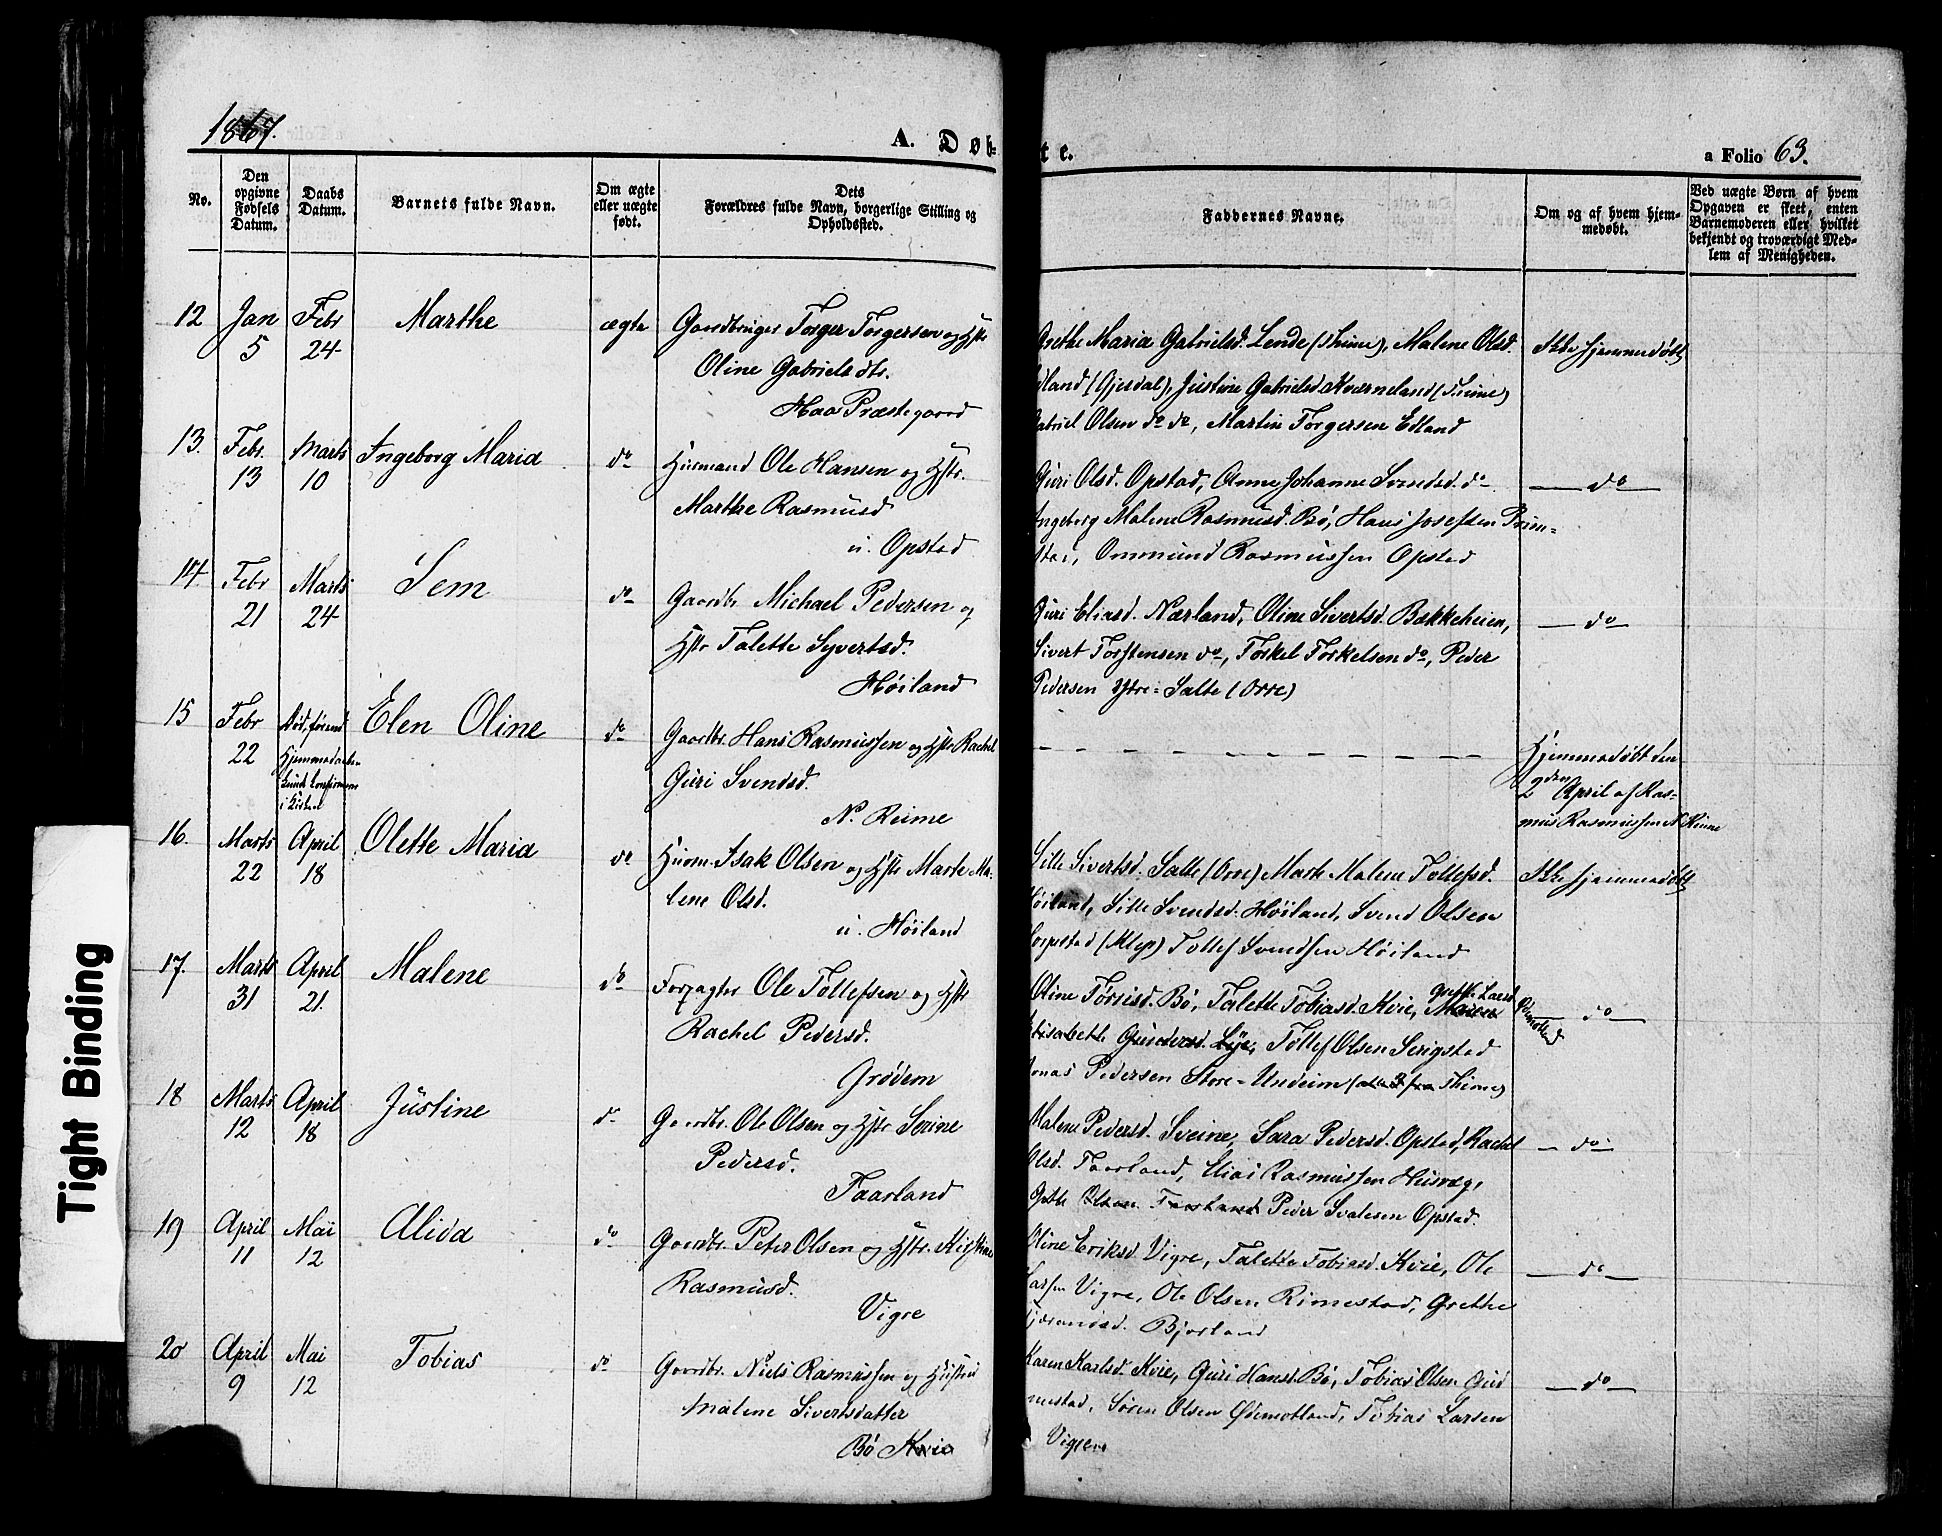 1867.
A. Døb-
te.
a Folio 63.
No.
Den
opgivne
Fødsels
Datum.
Daabs
Datum.
Barnets fulde Navn.
Om ægte
eller uægte
født.
Dets
Forældres fulde Navn, borgerlige Stilling og
Opholdssted.
Faddernes Navne.
Om og af hvem hjem-
medøbt.
Ved uægte Børn af hvem
Opgaven er skeet, enten
Barnemoderen eller hvilket
bekjendt og troværdigt Med-
lem af Menigheden.
12 Jan Febr Marthe ægte Gaardbruger Torger Torgersen og Hstr
5 24 Oline Gabrielsdtr.
Haa Præstegaard
Grethe Maria Gabrielsd. Lende (Thime), Malene Olsd. Ikke hjemmedøbt
Edland (Gjesdal), Justine Gabrielsd. Kværneland (Thime)
Gabriel Olsen do do, Martin Torgersen Edland
13. Febr. Marts Ingeborg Maria do Huusmand Ole Hansen og Hstr.
13 10 Marthe Rasmusd
u. Opstad
Guri Olsd. Opstad, Anne Johanne Svendsd. do do
Ingeborg Malene Rasmusd. Bø, Hans Josefsen
Ommund Rasmussen Opstad
14. Febr Marts Sem do Gaardbr Michael Pedersen og
21 24 Hstr Talette Syvertsd.
Høiland
Guri Eliasd. Nærland, Oline Sivertsd. Bækkeheien, do
Sivert Torstensen do, Torkel Torkelsen do, Peder
Pedersen Ytre-Salte (Orre)
15 Febr Død, førend Elen Oline do Gaardbr. Hans Rasmussen og Hstr Rachel
22 Hjemmedaaben Guri Svendsd.
kunde confirmeres
i Kirken
N. Reime
Hjemmedøbt den
2den April af Ras-
mus Rasmussen N. Reime
16. Marts April Olette Maria do Huusm. Isak Olsen og Hstr Marte Ma-
22 18 lene Olsd.
u. Høiland
Sille Sivertsd. Salte (Orre) Marte Malene Tollefsd. Ikke hjemmedøbt
Høiland, Sille Svendsd. Høiland, Svend Olsen
(Klep) Tollef Svendsen Høiland
17. Marts April Malene do Forpagter Ole Tollefsen og Hstr
31 21. Rachel Pedersd.
Grødem
Grethe Larsd
Oline Tørrisd. Bø, Talette Tobiasd. Kvie, do
Elisabeth Gundersd. Lye, Tollef Olsen Serigstad
Jonas Pedersen Store-Undeim (alle 3 fra Thime)
18 Marts April Justine do Gaardbr. Ole Olsen og Hstr Serine
12 18 Pedersd.
Taarland
Malene Pedersd. Sveine, Sara Pedersd. Opstad, Rachel do
Olsd. Taarland, Elias Rasmussen Husvæg,
Taarland Peder Svalesen Opstad.
19 April Mai Alida do Gaardbr. Peter Olsen og Hstr. Kirstine
11 12 Rasmusd.
Vigre
Oline Eriksd. Vigre, Talette Tobiasd. Kvie, Ole do
Larsen Vigre, Ole Olsen Rimestad, Grethe
Bjorland
20 April Mai Tobias do Gaardbr. Niels Rasmussen og Hustru
9 12 Malene Sivertsdatter
Bø Kvie
Karen Karlsd. Kvie, Guri Hansd. Bø, Tobias Olsen Gud do
mestad, Søren Olsen Ødemotland, Tobias Larsen
Vigre
Tight Binding